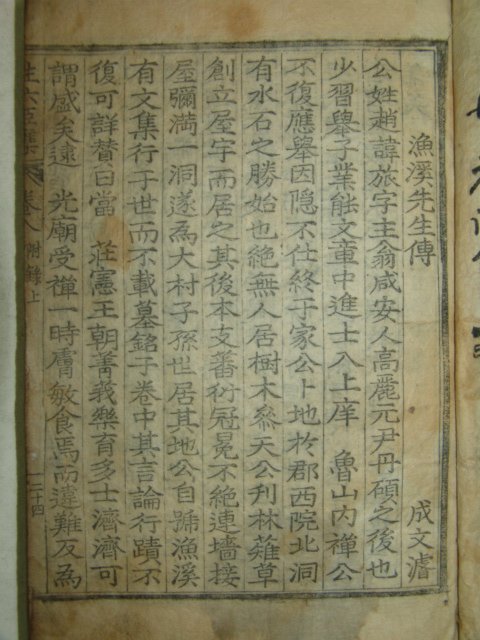 漁溪先生傳 成文濬
公姓趙諱旅字主翁咸安人高麗元尹丹碩之後也
少習舉子業能文章中進士入上庠 魯山內禪公
不復應舉因隱不仕終于家公卜地於郡西院北洞
有水石之勝始也絶無人居樹木叅天公刋林薙草
創立屋宇而居之其後本支蕃衍冠冕不絶連墻接
屋彌滿一洞遂為大村子孫世居其地公自號漁溪
有文集行于世而不載墓銘于卷中其言論行蹟不
復可詳賛曰當 莊憲王朝菁莪樂育多士濟濟可
謂盛矣逮 光廟受禪一時膚敏食焉而違難反為
生六臣集 卷八 附錄上 二十四